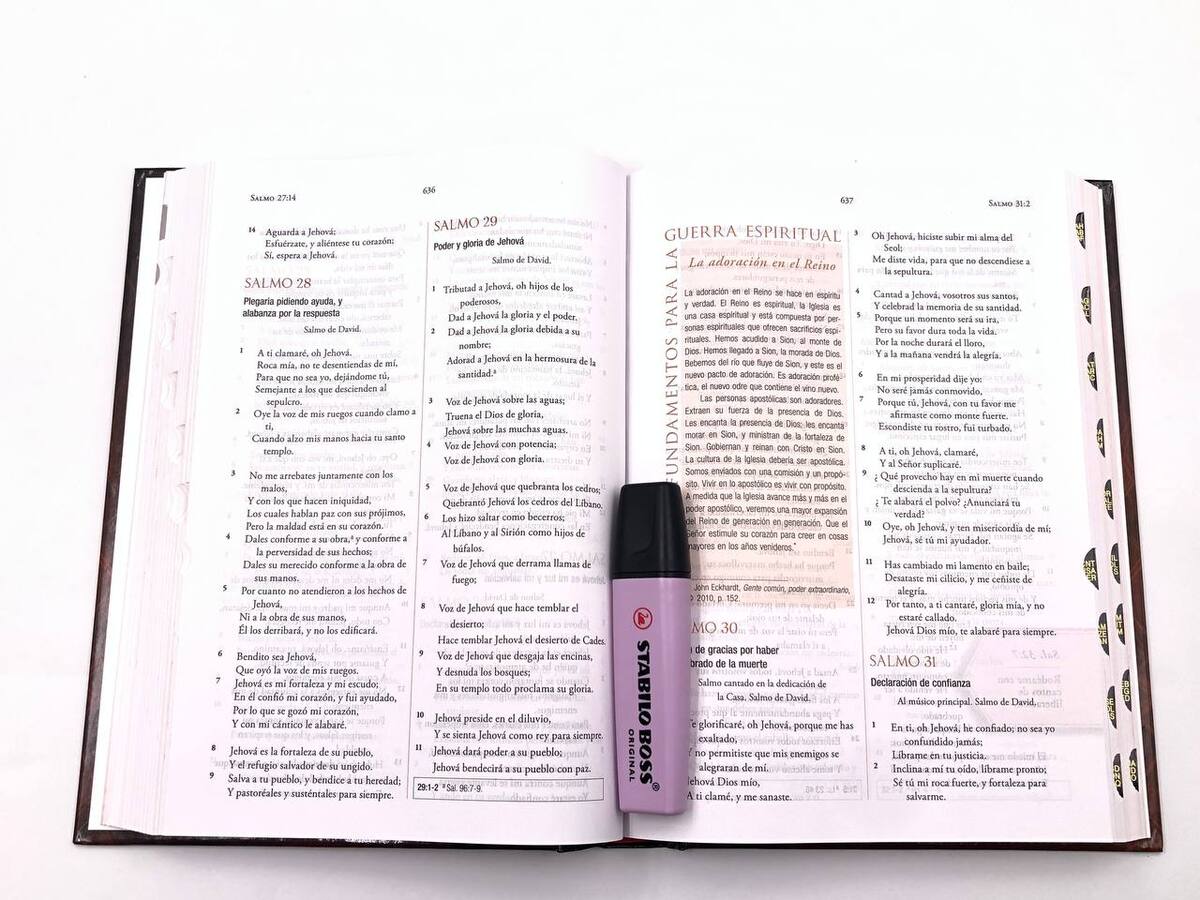 SALMO 27:14
636
14 Aguarda a Jehová;
Esfuérzate, y aliéntese tu corazón;
Sí, espera a Jehová.
SALMO 28
Plegaria pidiendo ayuda, y
alabanza por la respuesta
Salmo de David.
1 A ti clamaré, oh Jehová.
Roca mía, no te desentiendas de mí,
Para que no sea yo, dejándome tú,
Semejante a los que descienden al
sepulcro.
2 Oye la voz de mis ruegos cuando clamo a
ti,
Cuando alzo mis manos hacia tu santo
templo.
3 No me arrebates juntamente con los
malos,
Y con los que hacen iniquidad,
Los cuales hablan paz con sus prójimos,
Pero la maldad está en su corazón.
4 Dales conforme a su obra,a y conforme a
la perversidad de sus hechos;
Dales su merecido conforme a la obra de
sus manos.
5 Por cuanto no atendieron a los hechos de
Jehová,
Ni a la obra de sus manos,
Él los derribará, y no los edificará.
6 Bendito sea Jehová,
Que oyó la voz de mis ruegos.
7 Jehová es mi fortaleza y mi escudo;
En él confió mi corazón, y fui ayudado,
Por lo que se gozó mi corazón,
Y con mi cántico le alabaré.
8 Jehová es la fortaleza de su pueblo,
Y el refugio salvador de su ungido.
9 Salva a tu pueblo, y bendice a tu heredad;
Y pastoréales y susténtales para siempre.
SALMO 29
Poder y gloria de Jehová
Salmo de David.
1 Tributad a Jehová, oh hijos de los
poderosos,
Dad a Jehová la gloria y el poder.
2 Dad a Jehová la gloria debida a su
nombre;
Adorad a Jehová en la hermosura de la
santidad.a
3 Voz de Jehová sobre las aguas;
Truena el Dios de gloria,
Jehová sobre las muchas aguas.
4 Voz de Jehová con potencia;
Voz de Jehová con gloria.
5 Voz de Jehová que quebranta los cedros;
Quebrantó Jehová los cedros del Líbano.
6 Los hizo saltar como becerros;
Al Líbano y al Sirión como hijos de
búfalos.
7 Voz de Jehová que derrama llamas de
fuego;
8 Voz de Jehová que hace temblar el
desierto;
Hace temblar Jehová el desierto de Cades.
9 Voz de Jehová que desgaja las encinas,
Y desnuda los bosques;
En su templo todo proclama su gloria.
10 Jehová preside en el diluvio,
Y se sienta Jehová como rey para siempre.
11 Jehová dará poder a su pueblo;
Jehová bendecirá a su pueblo con paz.
29:1-2 a Sal. 96:7-9.
637
SALMO 31:2
FUNDAMENTOS PARA LA GUERRA ESPIRITUAL
La adoración en el Reino
La adoración en el Reino se hace en espíritu
y verdad. El Reino es espiritual, la Iglesia es
una casa espiritual y está compuesta por per-
sonas espirituales que ofrecen sacrificios espi-
rituales. Hemos acudido a Sion, al monte de
Dios. Hemos llegado a Sion, la morada de Dios.
Bebemos del río que fluye de Sion, y este es el
nuevo pacto de adoración. Es adoración profé-
tica, el nuevo odre que contiene el vino nuevo.
Las personas apostólicas son adoradores.
Extraen su fuerza de la presencia de Dios.
Les encanta la presencia de Dios; les encanta
morar en Sion, y ministran de la fortaleza de
Sion. Gobiernan y reinan con Cristo en Sion.
La cultura de la Iglesia debería ser apostólica.
Somos enviados con una comisión y un propó-
sito. Vivir en lo apostólico es vivir con propósito.
A medida que la Iglesia avance más y más en el
poder apostólico, veremos una mayor expansión
del Reino de generación en generación. Que el
Señor estimule su corazón para creer en cosas
mayores en los años venideros.*
John Eckhardt, Gente común, poder extraordinario,
2010, p. 152.
MO 30
de gracias por haber
brado de la muerte
Salmo cantado en la dedicación de
la Casa. Salmo de David.
Te glorificaré, oh Jehová, porque me has
exaltado,
Y no permitiste que mis enemigos se
alegraran de mí.
Jehová Dios mío,
A ti clamé, y me sanaste.
3 Oh Jehová, hiciste subir mi alma del
Seol;
Me diste vida, para que no descendiese a
la sepultura.
4 Cantad a Jehová, vosotros sus santos,
Y celebrad la memoria de su santidad.
5 Porque un momento será su ira,
Pero su favor dura toda la vida.
Por la noche durará el lloro,
Y a la mañana vendrá la alegría.
6 En mi prosperidad dije yo:
No seré jamás conmovido,
7 Porque tú, Jehová, con tu favor me
afirmaste como monte fuerte.
Escondiste tu rostro, fui turbado.
8 A ti, oh Jehová, clamaré,
Y al Señor suplicaré.
9 ¿Qué provecho hay en mi muerte cuando
descienda a la sepultura?
¿Te alabará el polvo? ¿Anunciará tu
verdad?
10 Oye, oh Jehová, y ten misericordia de mí;
Jehová, sé tú mi ayudador.
11 Has cambiado mi lamento en baile;
Desataste mi cilicio, y me ceñiste de
alegría.
12 Por tanto, a ti cantaré, gloria mía, y no
estaré callado.
Jehová Dios mío, te alabaré para siempre.
SALMO 31
Declaración de confianza
Al músico principal. Salmo de David.
1 En ti, oh Jehová, he confiado; no sea yo
confundido jamás;
Líbrame en tu justicia.
2 Inclina a mí tu oído, líbrame pronto;
Sé tú mi roca fuerte, y fortaleza para
salvarme.
STABILO BOSS®
ORIGINAL